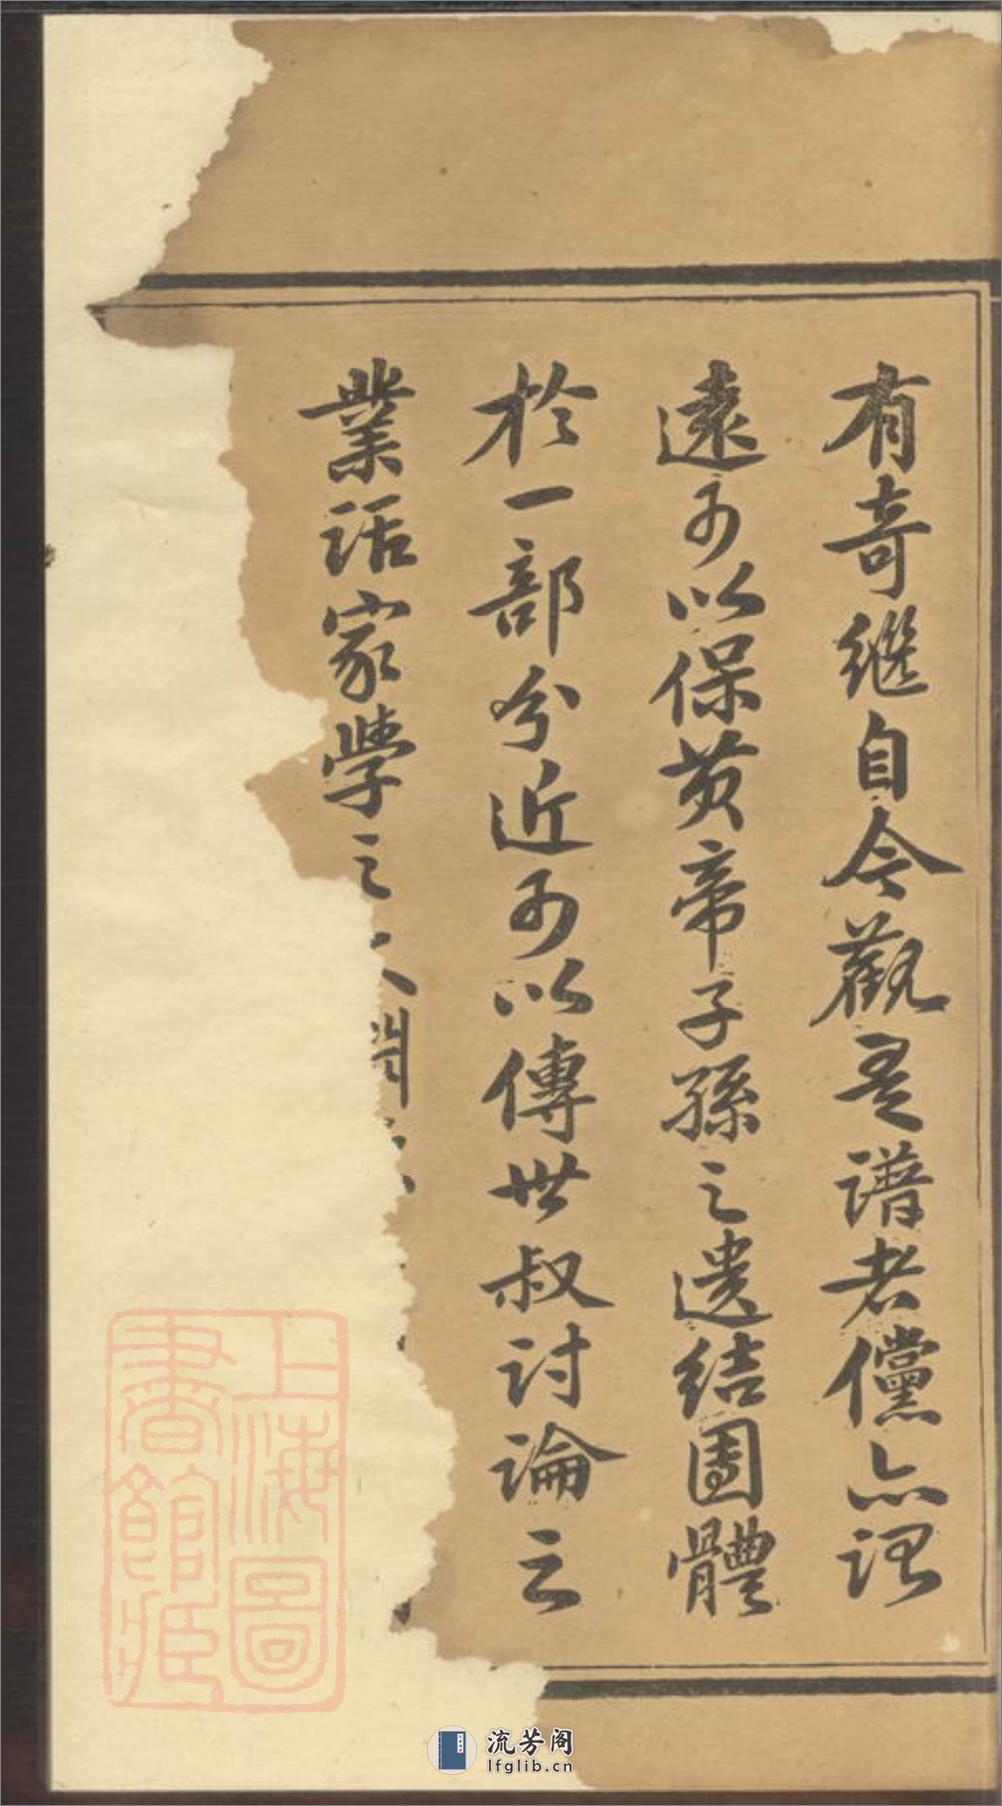 有奇継自今觀吾譜者儻亦謂
遠可以保黃帝子孫之遺結團體
於一部分近可以傳世叔討論之
業括家學之淵
上海圖書館藏
流芳阁
lfglib.cn